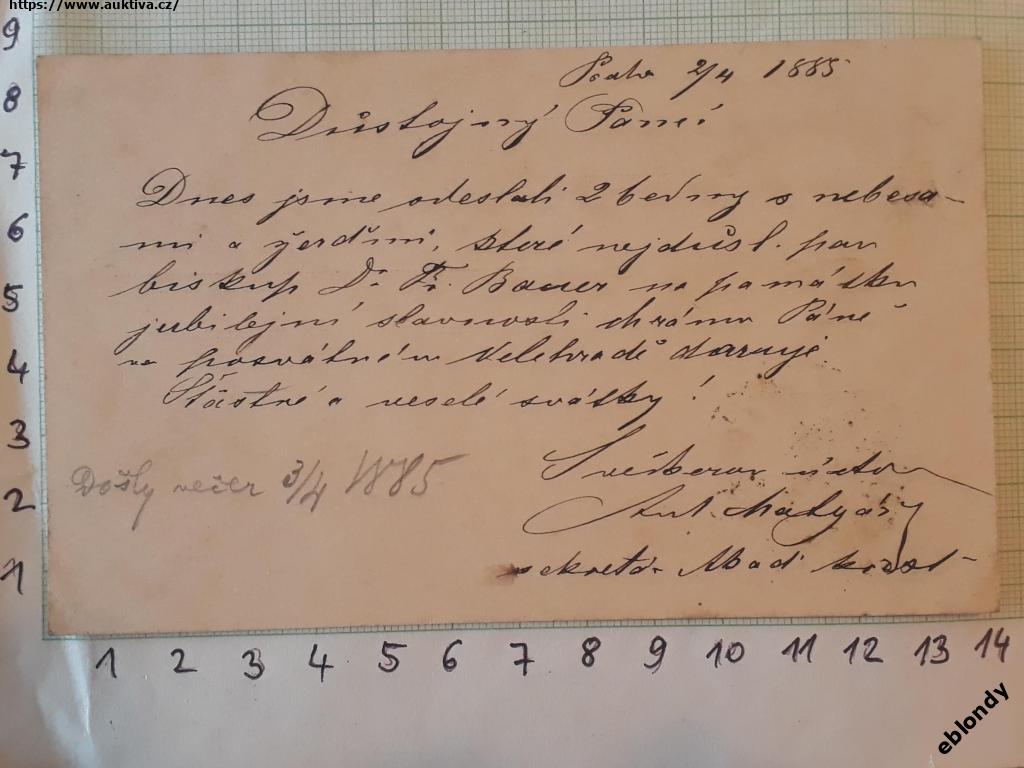 https://www.auktiva.cz/
Praha 2/4 1885
Důstojný Pane!
Dnes jsme odeslali 2 bedny s nebesa-
mi a žerděmi, které nejdůst. pan
biskup Dr. Fr. Bauer na památku
jubilejní slavnosti chrámu Páně
na posvátném Velehradě daruje.
Šťastné a veselé svátky!
S veškerou úctou
Ant. Matyáš
sekretár Akad
Došly večer 3/4 1885
9
8
7
6
5
4
3
2
1
1 2 3 4 5 6 7 8 9 10 11 12 13 14
eblondy